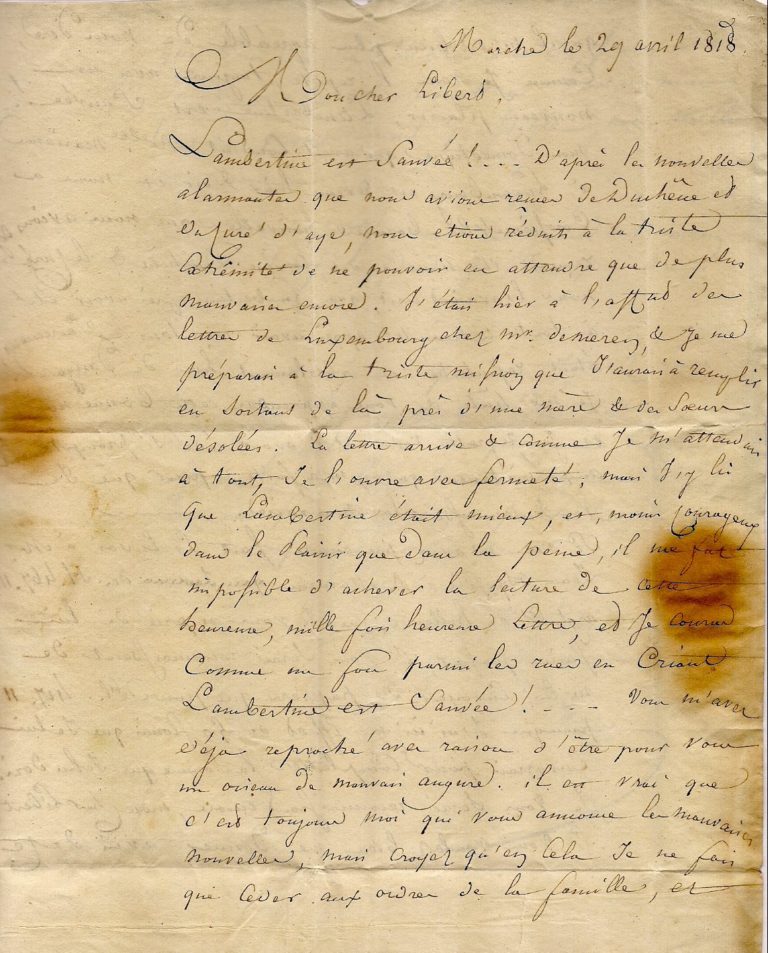 Marche le 29 avril 1818.
Mon cher Libert,
Lambertine est Sauvée ! - - - D'après les nouvelles
alarmantes que nous avions recues de Duchêne et
du Curé d'aye, nous étions réduits à la triste
Extrêmité de ne pouvoir en attendre que de plus
mauvaises encore. J'étais hier à l'affut des
lettres de Luxembourg chez mr. & Je me
préparais à la triste mission que J'aurais à remplir
en Sortant de là près d'une mère & des Sœurs
désolées. La lettre arrive & comme Je m'attendais
à tout, Je l'ouvre avec fermeté ; mais J'y lis
que Lambertine était mieux, et, moins Courageux
dans le Plaisir que dans la peine, il me fut
impossible d'achever la lecture de cette
heureuse, mille fois heureuse Lettre, et Je courus
Comme un fou parmi les rues en Criant
Lambertine est Sauvée ! - - - - Vous m'avez
déja reproché avec raison d'être pour vous
un oiseau de mauvais augure. il est vrai que
c'est toujours moi qui vous annonce les mauvaises
nouvelles, mais croyez qu'en Cela Je ne fais
que Céder aux ordres de la famille, et